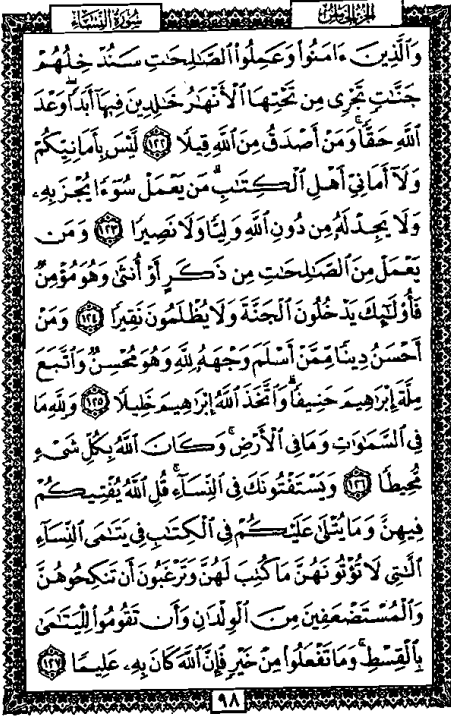 سُورَةُ النِّسَاءِ الجُزءُ الخَامِسُ
وَالَّذِينَ ءَامَنُوا۟ وَعَمِلُوا۟ الصَّـٰلِحَـٰتِ سَنُدْخِلُهُمْ
جَنَّـٰتٍ تَجْرِى مِن تَحْتِهَا الْأَنْهَـٰرُ خَـٰلِدِينَ فِيهَآ أَبَدًا ۖ وَعْدَ
اللَّهِ حَقًّا ۚ وَمَنْ أَصْدَقُ مِنَ اللَّهِ قِيلًا ١٢٢ لَّيْسَ بِأَمَانِيِّكُمْ
وَلَآ أَمَانِىِّ أَهْلِ الْكِتَـٰبِ ۗ مَن يَعْمَلْ سُوٓءًا يُجْزَ بِهِۦ
وَلَا يَجِدْ لَهُۥ مِن دُونِ اللَّهِ وَلِيًّا وَلَا نَصِيرًا ١٢٣ وَمَن
يَعْمَلْ مِنَ الصَّـٰلِحَـٰتِ مِن ذَكَرٍ أَوْ أُنثَىٰ وَهُوَ مُؤْمِنٌ
فَأُو۟لَـٰٓئِكَ يَدْخُلُونَ الْجَنَّةَ وَلَا يُظْلَمُونَ نَقِيرًا ١٢٤ وَمَنْ
أَحْسَنُ دِينًا مِّمَّنْ أَسْلَمَ وَجْهَهُۥ لِلَّهِ وَهُوَ مُحْسِنٌ وَاتَّبَعَ
مِلَّةَ إِبْرَٰهِيمَ حَنِيفًا ۗ وَاتَّخَذَ اللَّهُ إِبْرَٰهِيمَ خَلِيلًا ١٢٥ وَلِلَّهِ مَا
فِى السَّمَـٰوَٰتِ وَمَا فِى الْأَرْضِ ۚ وَكَانَ اللَّهُ بِكُلِّ شَىْءٍ
مُّحِيطًا ١٢٦ وَيَسْتَفْتُونَكَ فِى النِّسَآءِ ۖ قُلِ اللَّهُ يُفْتِيكُمْ
فِيهِنَّ وَمَا يُتْلَىٰ عَلَيْكُمْ فِى الْكِتَـٰبِ فِى يَتَـٰمَى النِّسَآءِ
الَّـٰتِى لَا تُؤْتُونَهُنَّ مَا كُتِبَ لَهُنَّ وَتَرْغَبُونَ أَن تَنكِحُوهُنَّ
وَالْمُسْتَضْعَفِينَ مِنَ الْوِلْدَٰنِ وَأَن تَقُومُوا۟ لِلْيَتَـٰمَىٰ
بِالْقِسْطِ ۚ وَمَا تَفْعَلُوا۟ مِنْ خَيْرٍ فَإِنَّ اللَّهَ كَانَ بِهِۦ عَلِيمًا ١٢٧
٩٨